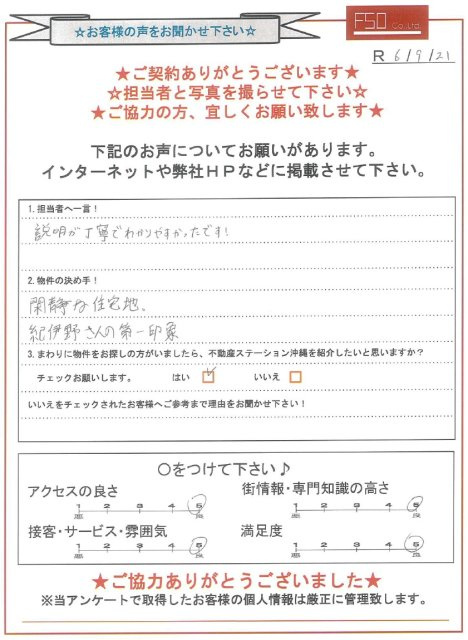 ☆お客様の声をお聞かせ下さい☆
FSO Co.,Ltd.
R 6/9/21
★ご契約ありがとうございます★
☆担当者と写真を撮らせて下さい☆
★ご協力の方、宜しくお願い致します★
下記のお声についてお願いがあります。
インターネットや弊社ＨＰなどに掲載させて下さい。
1. 担当者へ一言！
説明が丁寧でわかりやすかったです!
2. 物件の決め手！
閑静な住宅地。
紀伊野さんの第一印象
3. まわりに物件をお探しの方がいましたら、不動産ステーション沖縄を紹介したいと思いますか？
チェックお願いします。 はい ☑ いいえ □
いいえをチェックされたお客様へご参考まで理由をお聞かせ下さい！
〇をつけて下さい♪
アクセスの良さ 街情報・専門知識の高さ
1 2 3 4 5 1 2 3 4 5
悪 良 悪 良
接客・サービス・雰囲気 満足度
1 2 3 4 5 1 2 3 4 5
悪 良 悪 良
★ご協力ありがとうございました★
※当アンケートで取得したお客様の個人情報は厳正に管理致します。